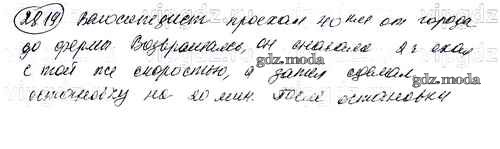 28.19) Велосипедист проехал 40 км от города
до фермы. Возвращаясь, он сначала 2 ч ехал
с той же скоростью, а затем сделал
остановку на 20 мин. После остановки
gdz.moda
gdz.moda
gdz.moda
gdz.moda